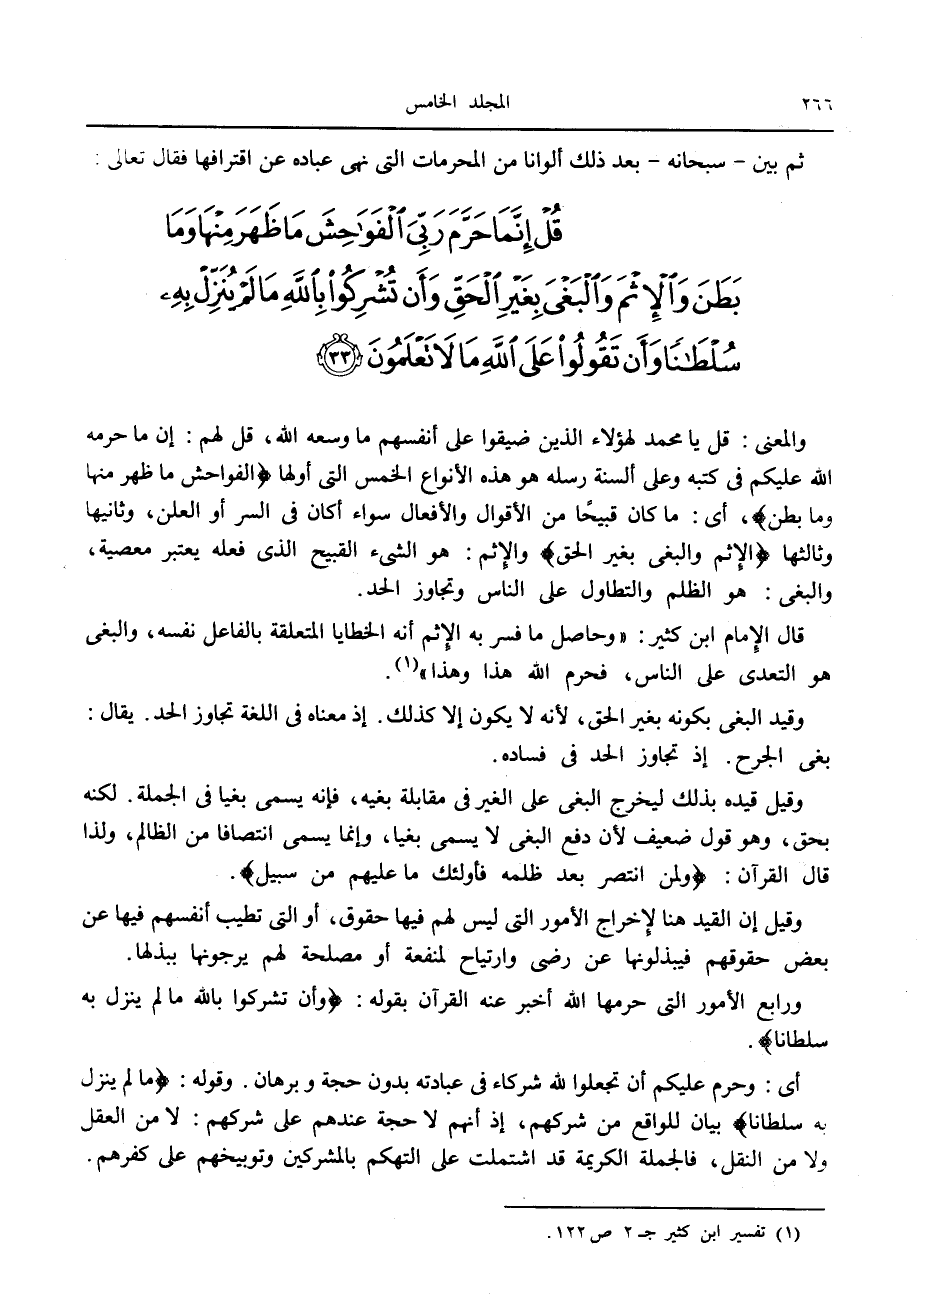 ٢٦٦ المجلد الخامس
ثم بين – سبحانه – بعد ذلك ألوانا من المحرمات التى نهى عباده عن اقترافها فقال تعالى :
قُلْ إِنَّمَا حَرَّمَ رَبِّىَ ٱلْفَوَٰحِشَ مَا ظَهَرَ مِنْهَا وَمَا
بَطَنَ وَٱلْإِثْمَ وَٱلْبَغْىَ بِغَيْرِ ٱلْحَقِّ وَأَن تُشْرِكُوا۟ بِٱللَّهِ مَا لَمْ يُنَزِّلْ بِهِۦ
سُلْطَٰنًا وَأَن تَقُولُوا۟ عَلَى ٱللَّهِ مَا لَا تَعْلَمُونَ ﴿٣٣﴾
والمعنى : قل يا محمد لهؤلاء الذين ضيقوا على أنفسهم ما وسعه الله، قل لهم : إن ما حرمه
الله عليكم فى كتبه وعلى ألسنة رسله هو هذه الأنواع الخمس التى أولها ﴿الفواحش ما ظهر منها
وما بطن﴾، أى : ما كان قبيحًا من الأقوال والأفعال سواء أكان فى السر أو العلن، وثانيها
وثالثها ﴿الإثم والبغى بغير الحق﴾ والإثم : هو الشىء القبيح الذى فعله يعتبر معصية،
والبغى : هو الظلم والتطاول على الناس وتجاوز الحد.
قال الإمام ابن كثير : «وحاصل ما فسر به الإثم أنه الخطايا المتعلقة بالفاعل نفسه، والبغى
هو التعدى على الناس، فحرم الله هذا وهذا»(١).
وقيد البغى بكونه بغير الحق، لأنه لا يكون إلا كذلك. إذ معناه فى اللغة تجاوز الحد. يقال :
بغى الجرح. إذ تجاوز الحد فى فساده.
وقيل قيده بذلك ليخرج البغى على الغير فى مقابلة بغيه، فإنه يسمى بغيا فى الجملة. لكنه
بحق، وهو قول ضعيف لأن دفع البغى لا يسمى بغيا، وإنما يسمى انتصافا من الظالم، ولذا
قال القرآن : ﴿ولمن انتصر بعد ظلمه فأولئك ما عليهم من سبيل﴾.
وقيل إن القيد هنا لإخراج الأمور التى ليس لهم فيها حقوق، أو التى تطيب أنفسهم فيها عن
بعض حقوقهم فيبذلونها عن رضى وارتياح لمنفعة أو مصلحة لهم يرجونها ببذلها.
ورابع الأمور التى حرمها الله أخبر عنه القرآن بقوله : ﴿وأن تشركوا بالله ما لم ينزل به
سلطانا﴾.
أى : وحرم عليكم أن تجعلوا لله شركاء فى عبادته بدون حجة و برهان. وقوله : ﴿ما لم ينزل
به سلطانا﴾ بيان للواقع من شركهم، إذ أنهم لا حجة عندهم على شركهم : لا من العقل
ولا من النقل، فالجملة الكريمة قد اشتملت على التهكم بالمشركين وتوبيخهم على كفرهم.
(١) تفسير ابن كثير جـ ٢ ص ١٢٢.